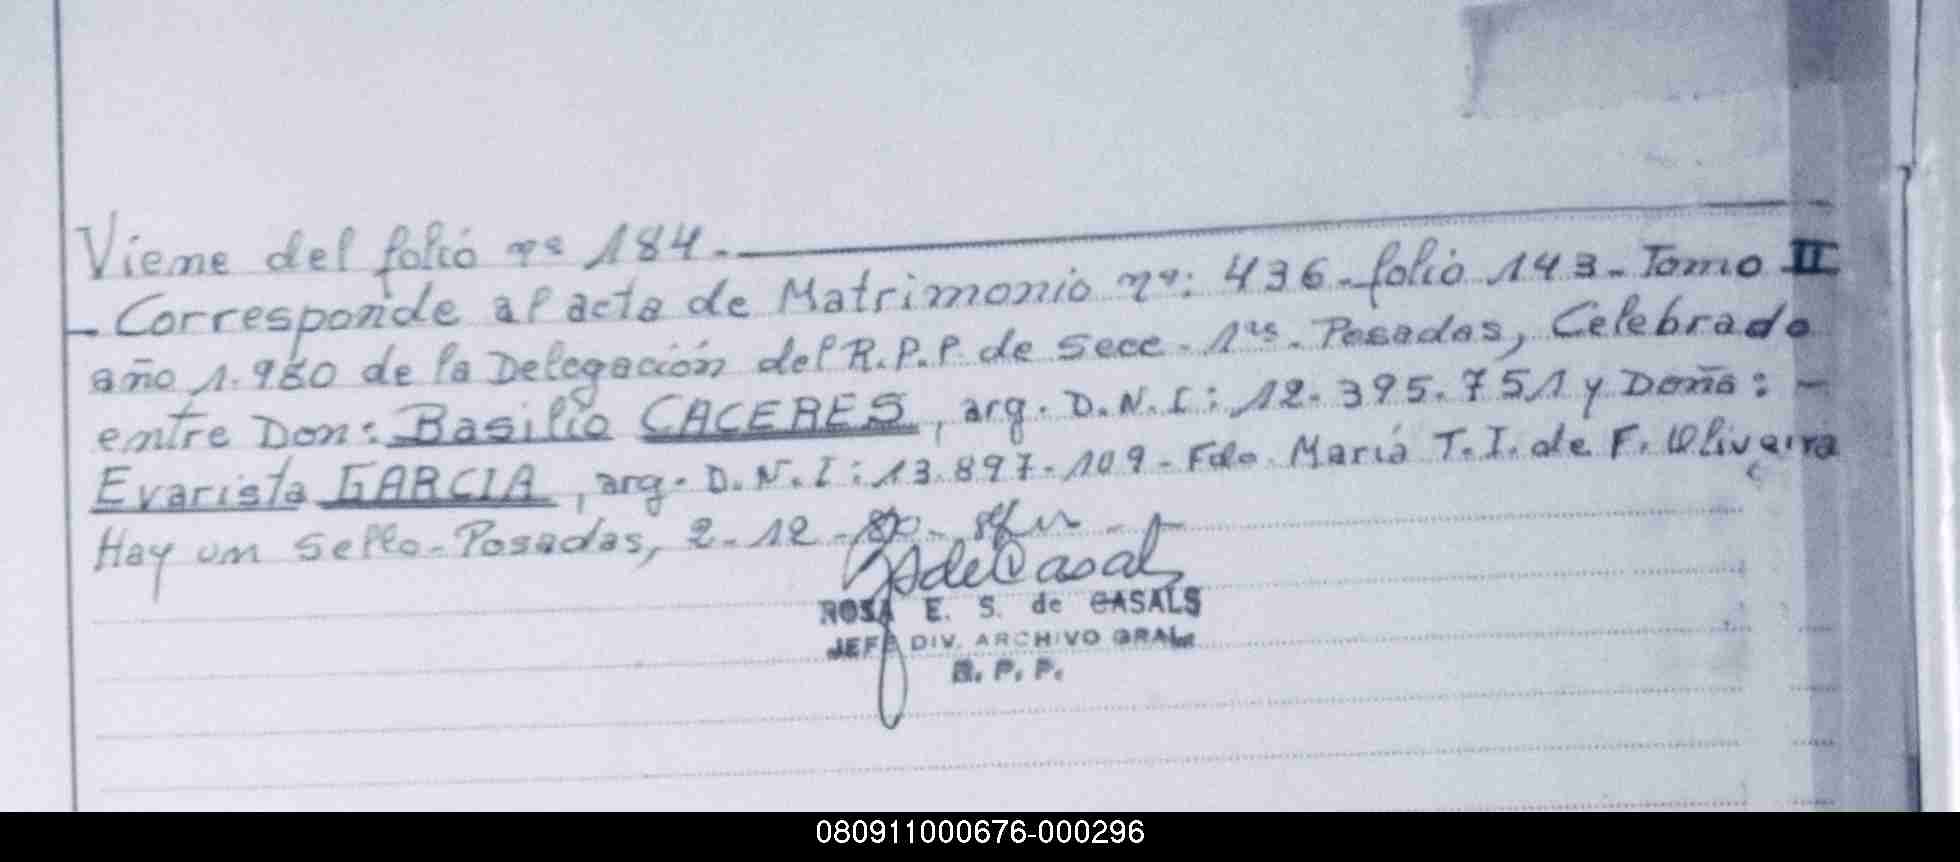 Viene del folio nº 184.-
- Corresponde al acta de Matrimonio nº: 436 - folio 143 - Tomo II
año 1.980 de la Delegación del R.P.P. de Secc. 1ra. Posadas, Celebrado
entre Don: Basilio CACERES, arg. D.N.I: 12.395.751 y Doña: -
Evarista GARCIA, arg. D.N.I: 13.897.109 - Fdo. María T. I. de F. Oliveira
Hay un Sello - Posadas, 2-12-80-
ROSA E. S. de CASALS
JEFA DIV. ARCHIVO GRAL.
R. P. P.
080911000676-000296